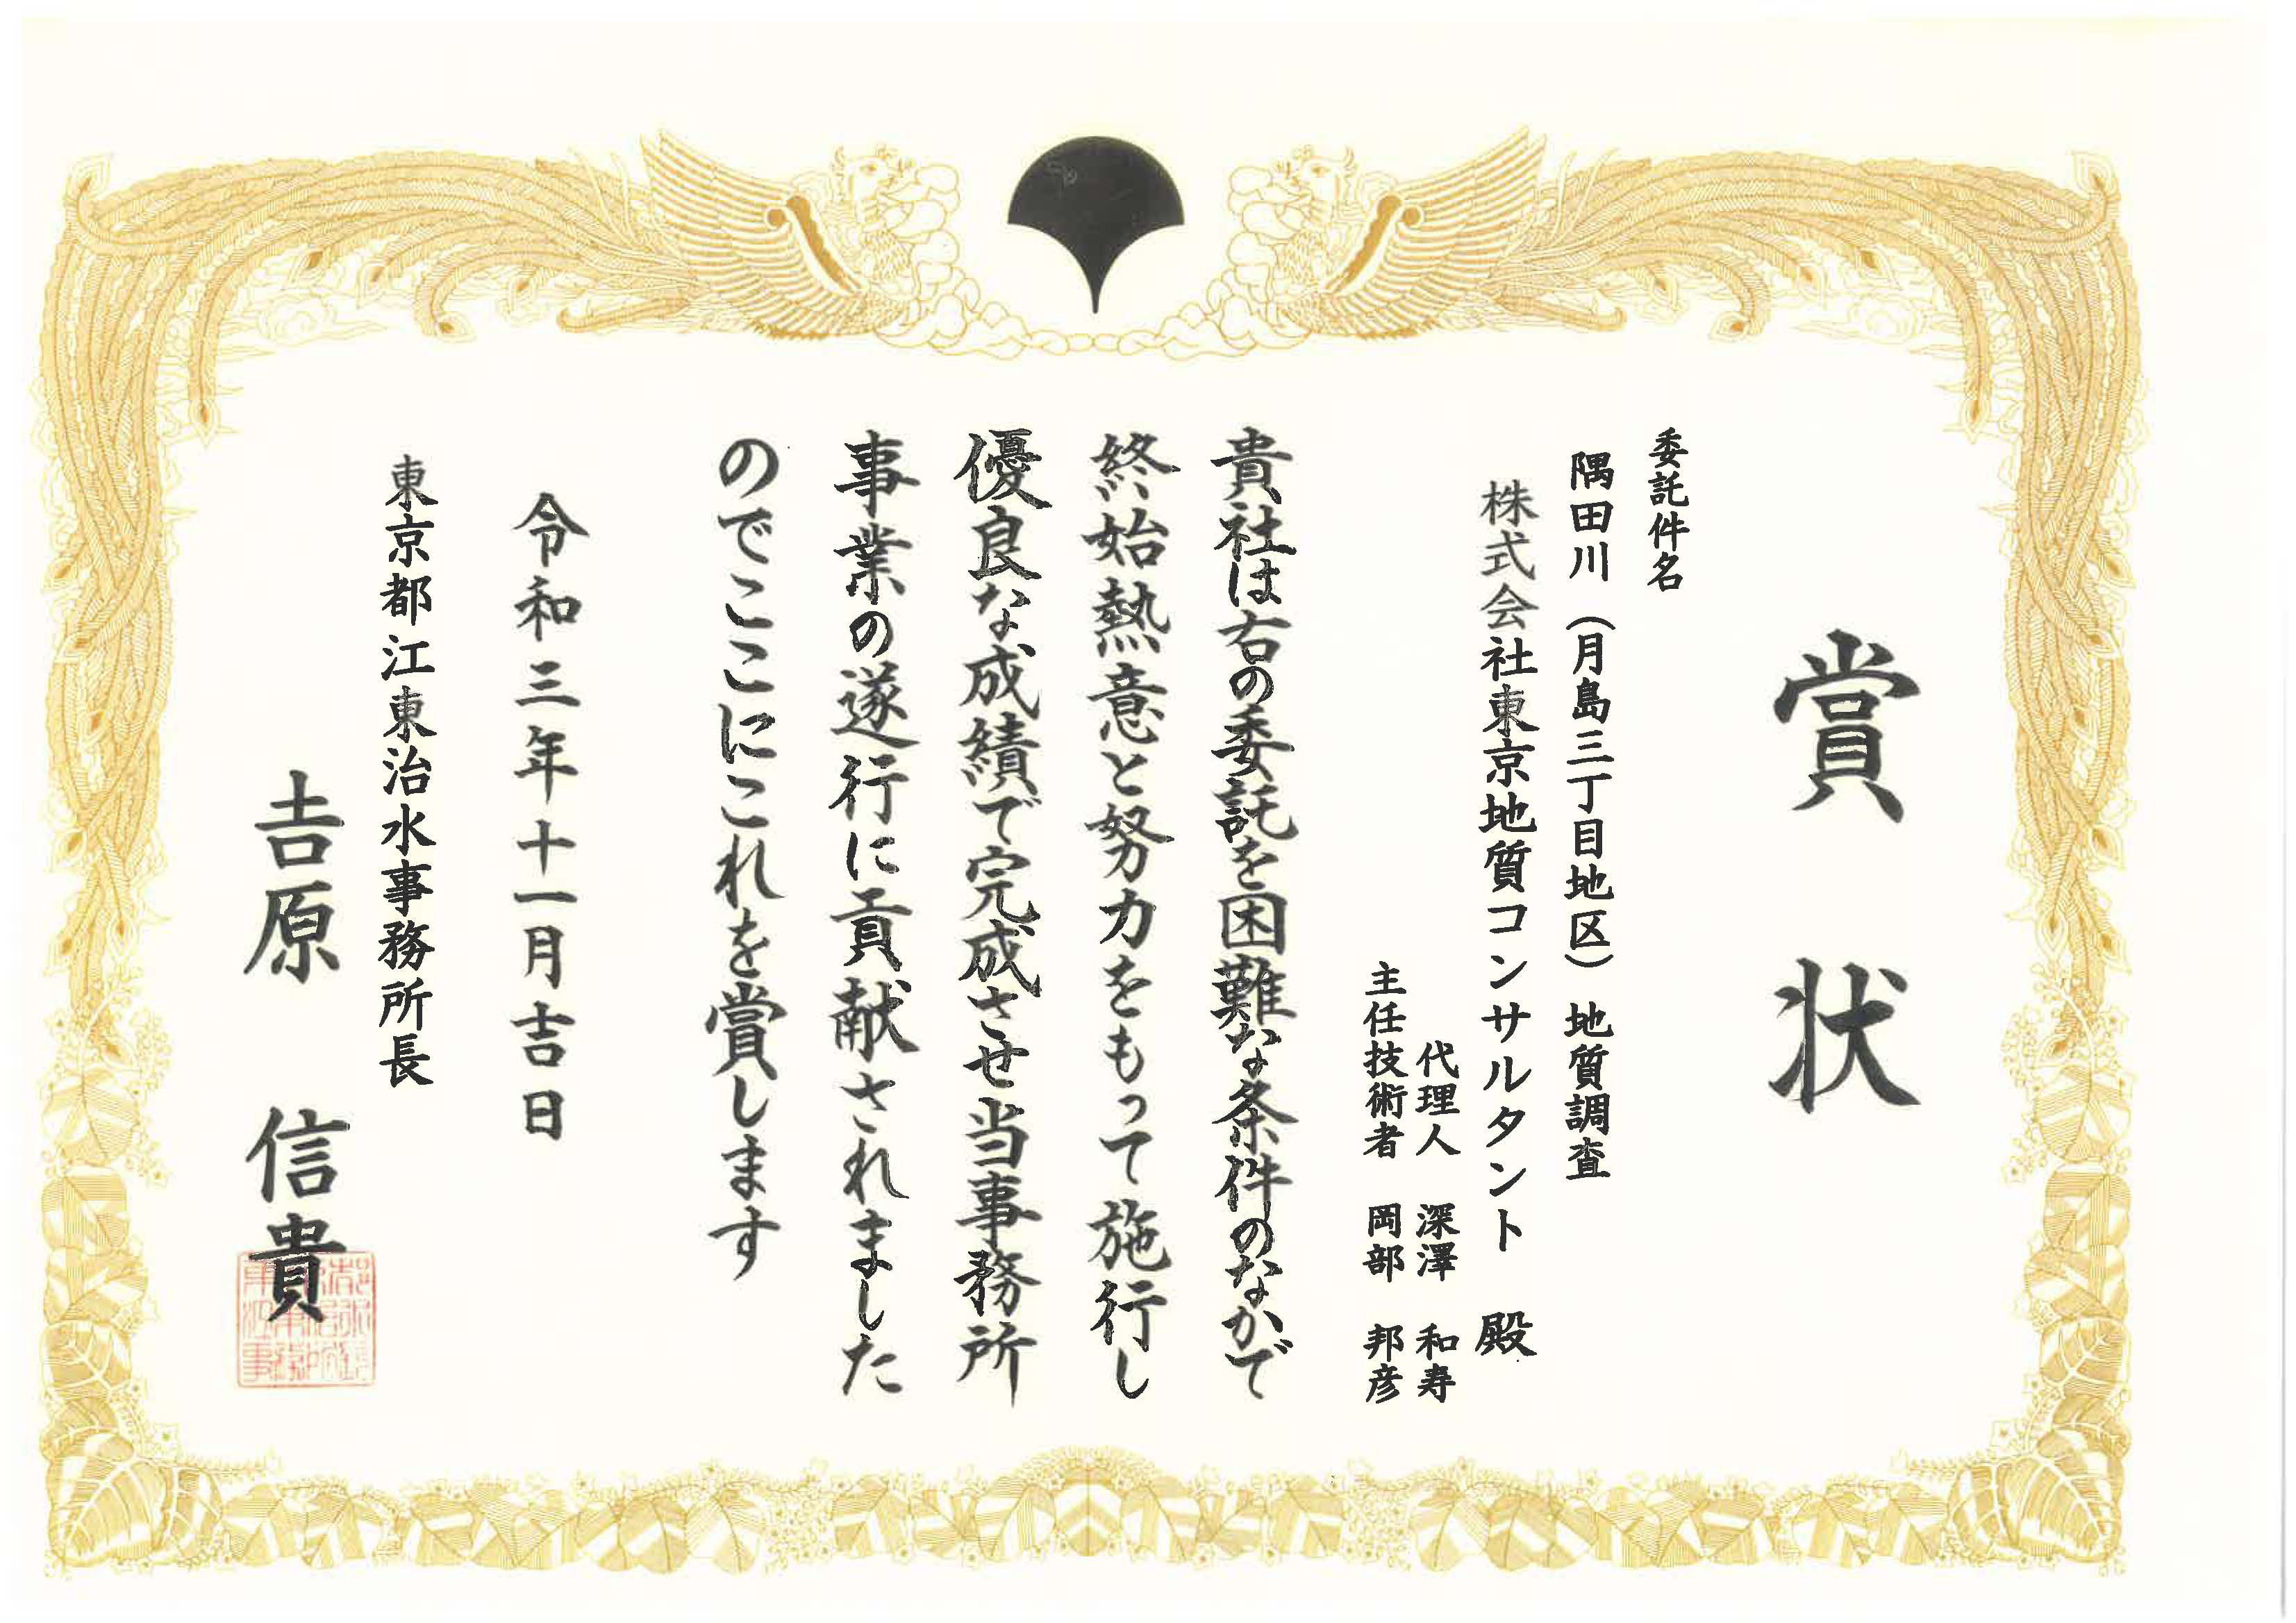 賞状
委託件名
隅田川（月島三丁目地区）地質調査
株式会社東京地質コンサルタント 殿
代理人 深澤 和寿
主任技術者 岡部 邦彦
貴社は右の委託を困難な条件のなかで
終始熱意と努力をもって施行し
優良な成績で完成させ当事務所
事業の遂行に貢献されました
のでここにこれを賞します
令和三年十一月吉日
東京都江東治水事務所長
𠮷原 信貴